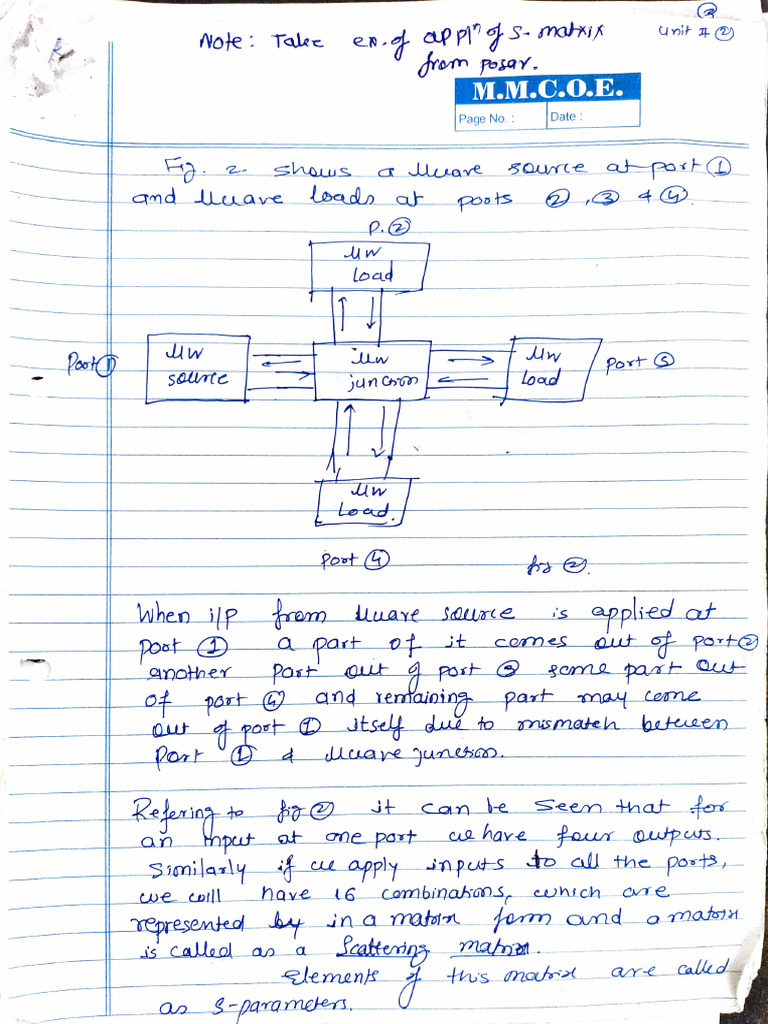 ③
Note: Take ex. of appln of s-matrix Unit # ②
from posar.
M.M.C.O.E.
Page No. : Date :
Fig. 2. shows a Mwave source at port ①
and Mwave loads at ports ②, ③ & ④.
P. ②
MW
load
Port ① MW
source
MW
junction
MW
Load
port ③
MW
Load.
port ④ fig ②.
When i/p from Mwave source is applied at
port ① a part of it comes out of port ②
another part out of port ③ some part out
of port ④ and remaining part may come
out of port ① itself due to mismatch between
Port ① & Mwave junction.
Refering to fig ② it can be seen that for
an input at one port we have four outputs.
Similarly if we apply inputs to all the ports,
we will have 16 combinations, which are
represented by in a matrix form and a matrix
is called as a Scattering matrix.
Elements of this matrix are called
as S-parameters.